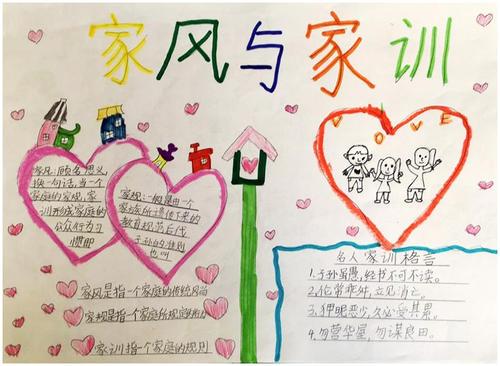 家风与家训
LOVE
家风:顾名思义,
换一句话,当一个
家庭的家规,家
训形成家庭的
公众行为习
惯即
家规:一般是由一个
家族所遗传下来的
教育规范后代
子孙的准则
也叫
家风是指一个家庭的传统风尚
家规是指一个家庭所规定的
家训指一个家庭的规则
名人家训格言
1.子孙虽愚,经书不可不读。
2.伦常乖舛,立见消亡。
3.狎昵恶少,久必受其累。
4.勿营华屋,勿谋良田。